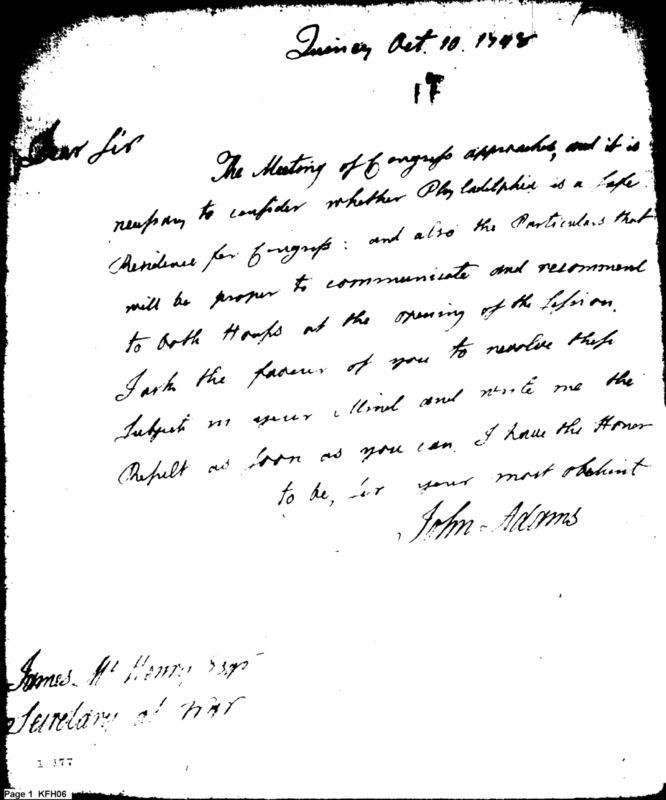 Quincy Oct. 10. 1798
17
Dear Sir
The Meeting of Congress approaches, and it is
necessary to consider whether Phyladelphia is a safe
Residence for Congress: and also the Particulars that
will be proper to communicate and recommend
to both Houses at the opening of the Session.
I ask the favour of you to revolve these
Subjects in your Mind and write me the
Result as soon as you can. I have the Honor
to be, Sir your most obedient
John Adams
James McHenry Esqr
Secretary at War
1 177
Page 1 KFH06